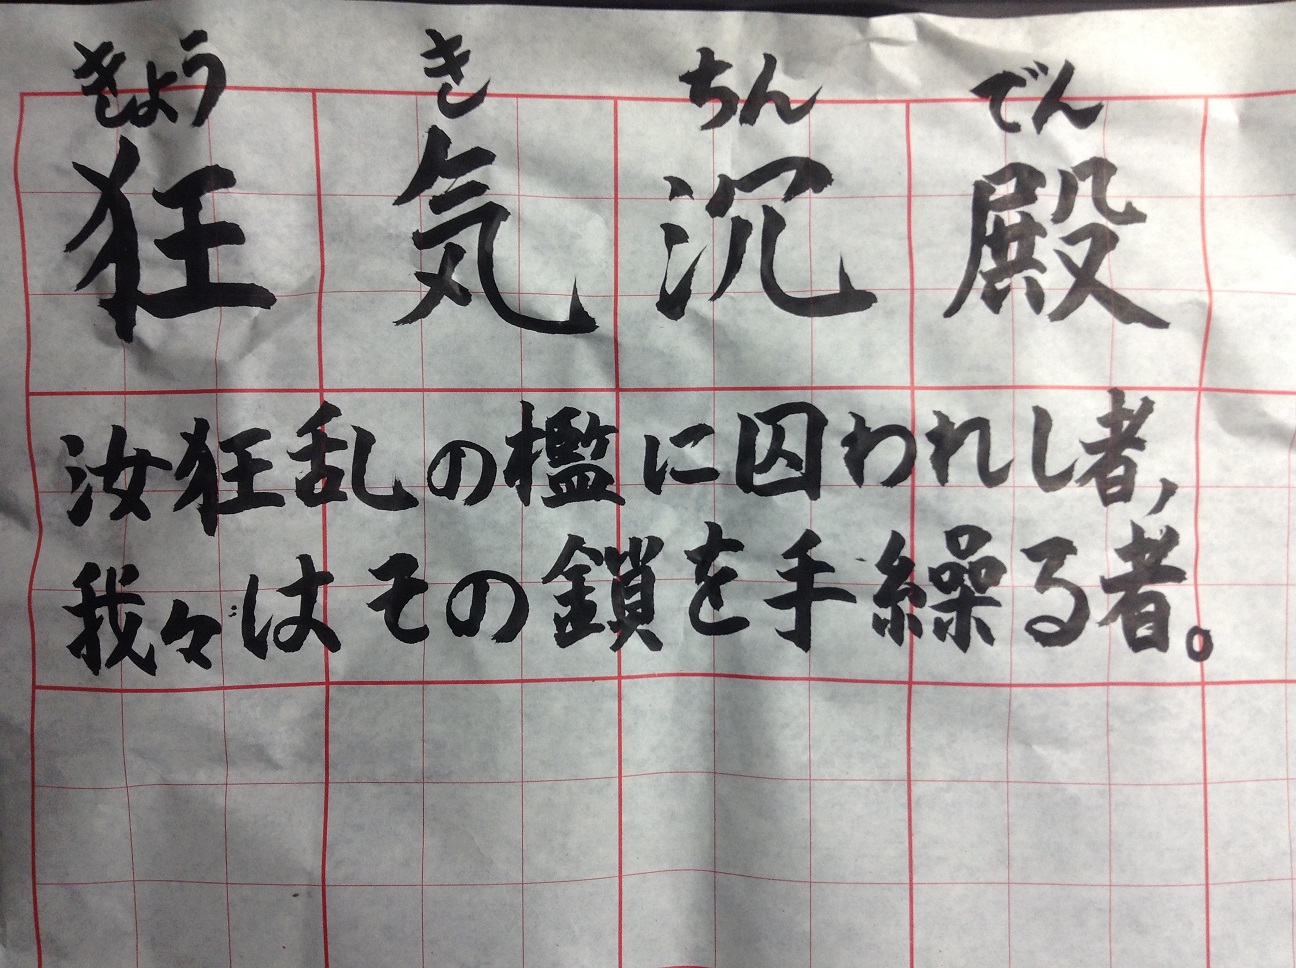 きょう き ちん でん
狂気沉殿
汝狂乱の檻に囚われし者,
我々はその鎖を手繰る者。